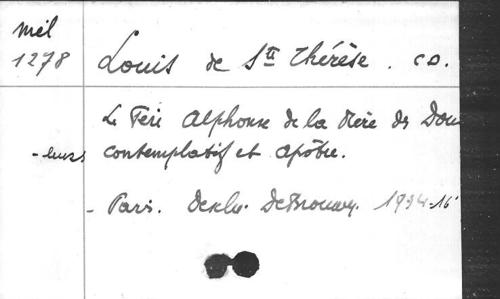 Mél
1278
Louis de Ste Thérèse. C D.
Le Père Alphonse de la Mère des Dou
-leurs contemplatif et apôtre.
- Paris. Desclée. DeBrouwer. 1934-16°